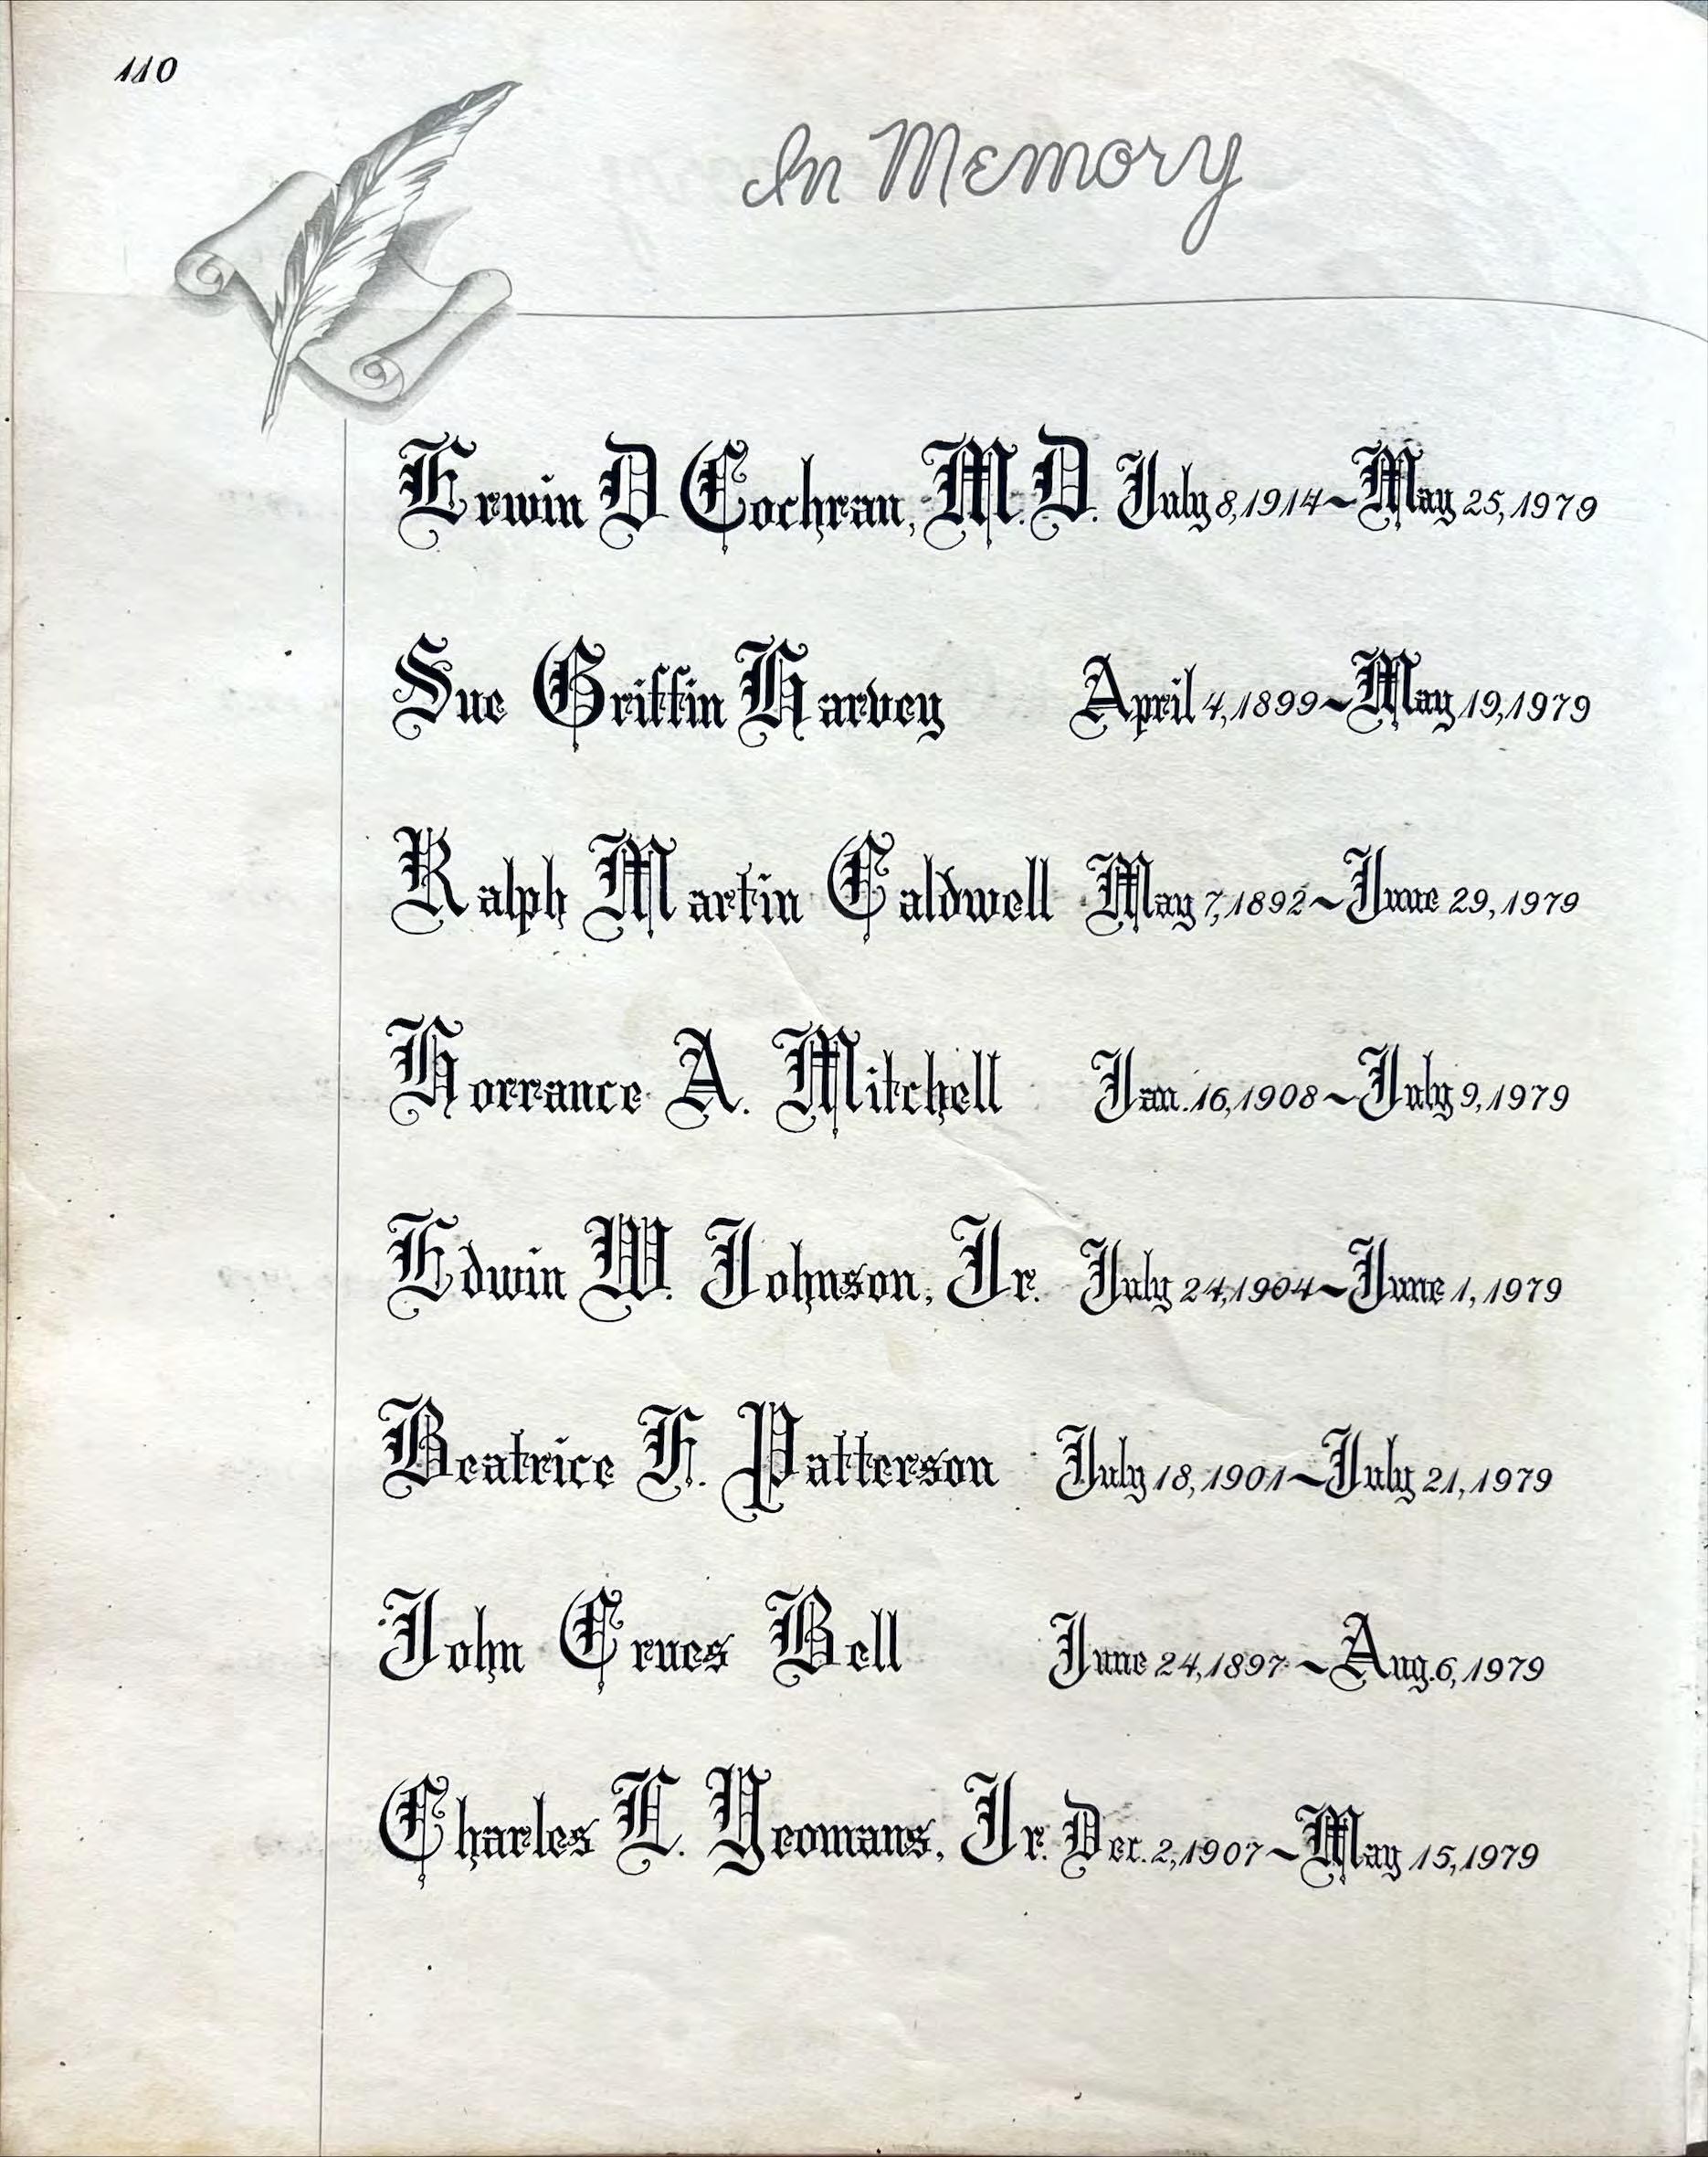 110
In Memory
Erwin D Cochran, M.D. July 8, 1914~May 25, 1979
Sue Griffin Harvey April 4, 1899~May 19, 1979
Ralph Martin Caldwell May 7, 1892~June 29, 1979
Horrance A. Mitchell Jan. 16, 1908~July 9, 1979
Edwin W. Johnson, Jr. July 24, 1904~June 1, 1979
Beatrice F. Patterson July 18, 1901~July 21, 1979
John Crues Bell June 24, 1897~Aug. 6, 1979
Charles E. Yeomans, Jr. Dec. 2, 1907~May 15, 1979